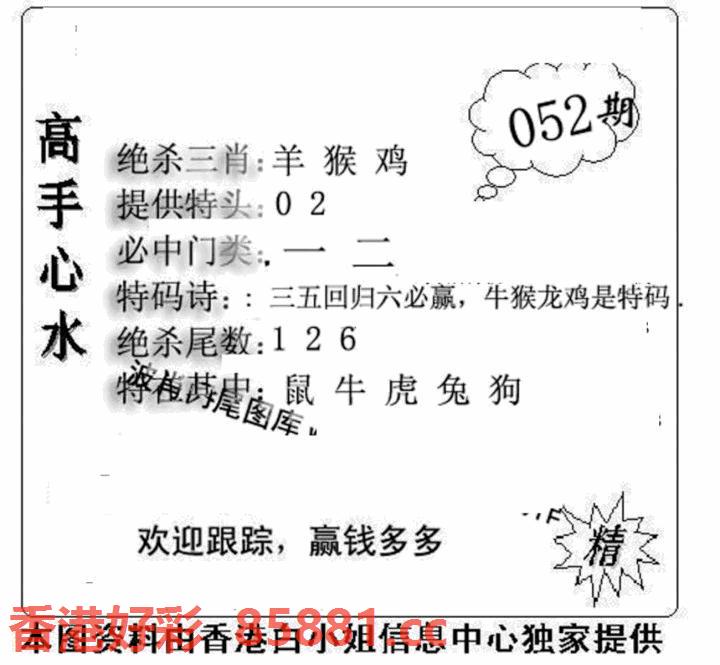 052期
高手心水
绝杀三肖:羊 猴 鸡
提供特头:0 2
必中门类:一 二
特码诗::三五回归六必赢,牛猴龙鸡是特码.
绝杀尾数:1 2 6
特在其中:鼠 牛 虎 兔 狗
尾图库
欢迎跟踪,赢钱多多
精
香港好彩 85881.cc
本图资料由香港白小姐信息中心独家提供